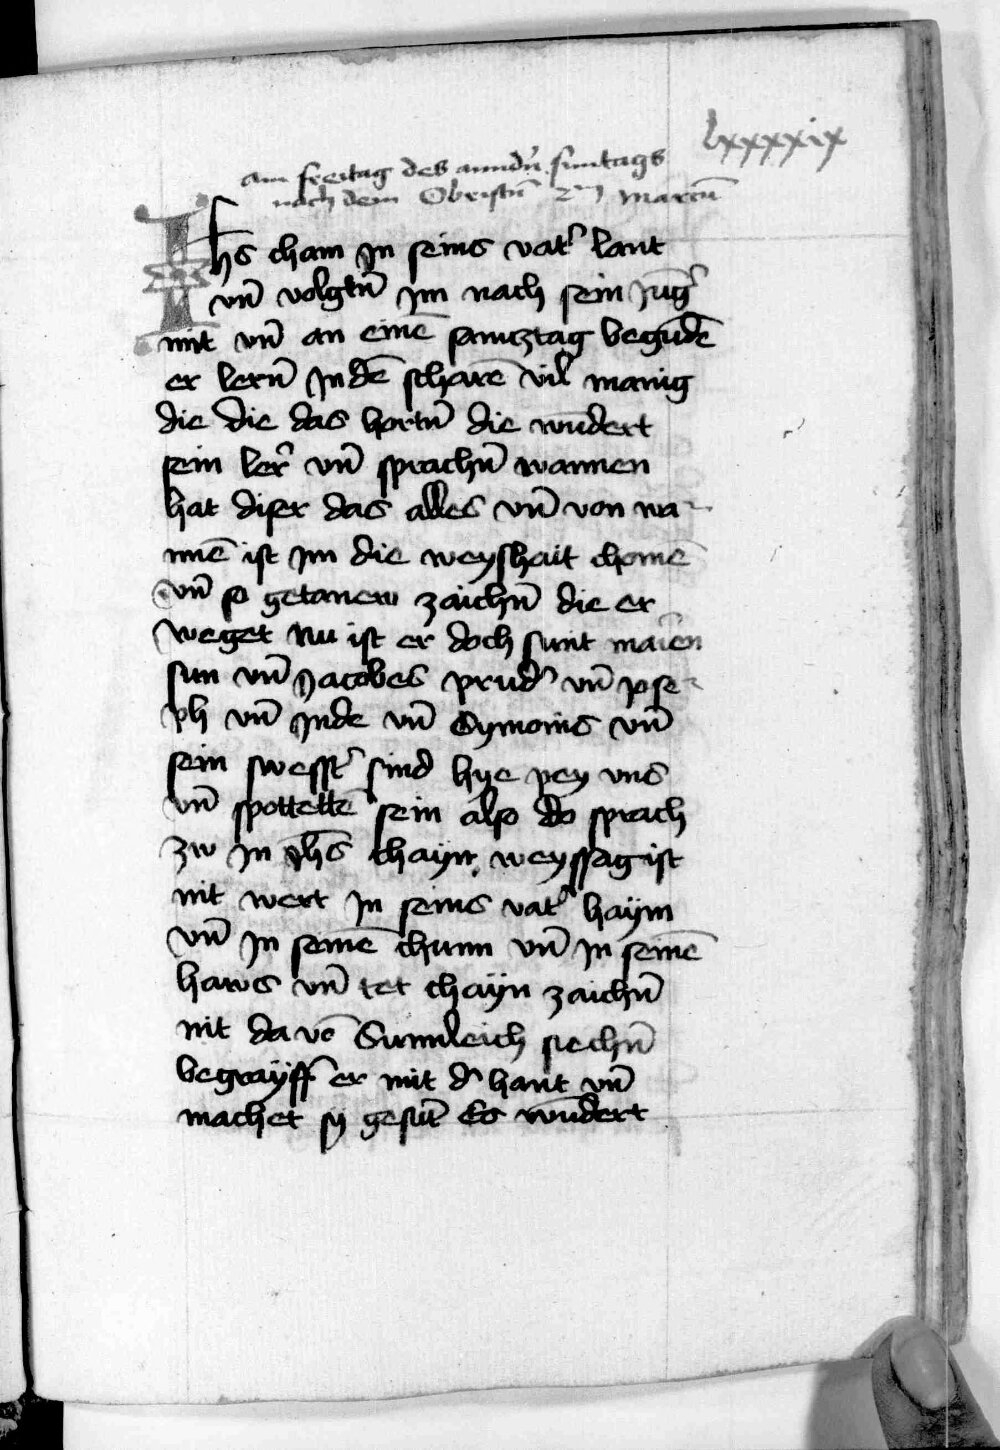 lxxxxix
am freitag des anndn̄ suntags
nach dem Obristn̄ Marcū
Ihs cham in seins vat' lant
vn̄ volgtn̄ im nach sein Jūg'
mit vn̄ an einē samcztag begūdē
er lern̄ in dē scharē vil manig
die die das hortn̄ die wūdert
sein ler' vn̄ sprachn̄ wannen
hat diser das alles vn̄ von wa-
nnē ist im die weyshait chomē
vn̄ so getanew zaichn̄ die er
weget Nu ist er doch sunt maīen
sun vn̄ Jacobes prud' vn̄ Jose-
ph vn̄ Jude vn̄ Symoins vn̄
sein swesst' sind hye pey vns
vn̄ spottettē sein also do sprach
zw in Jhs̄ chayn weyssag ist
nit wert in seins vat' haym
vn̄ in seinē chunn vn̄ in seinē
haws vn̄ tet chayn zaichn̄
nit da vō Sumleich siechn̄
begrayff er mit d' hant vn̄
machet sy gesūt Es wūdert